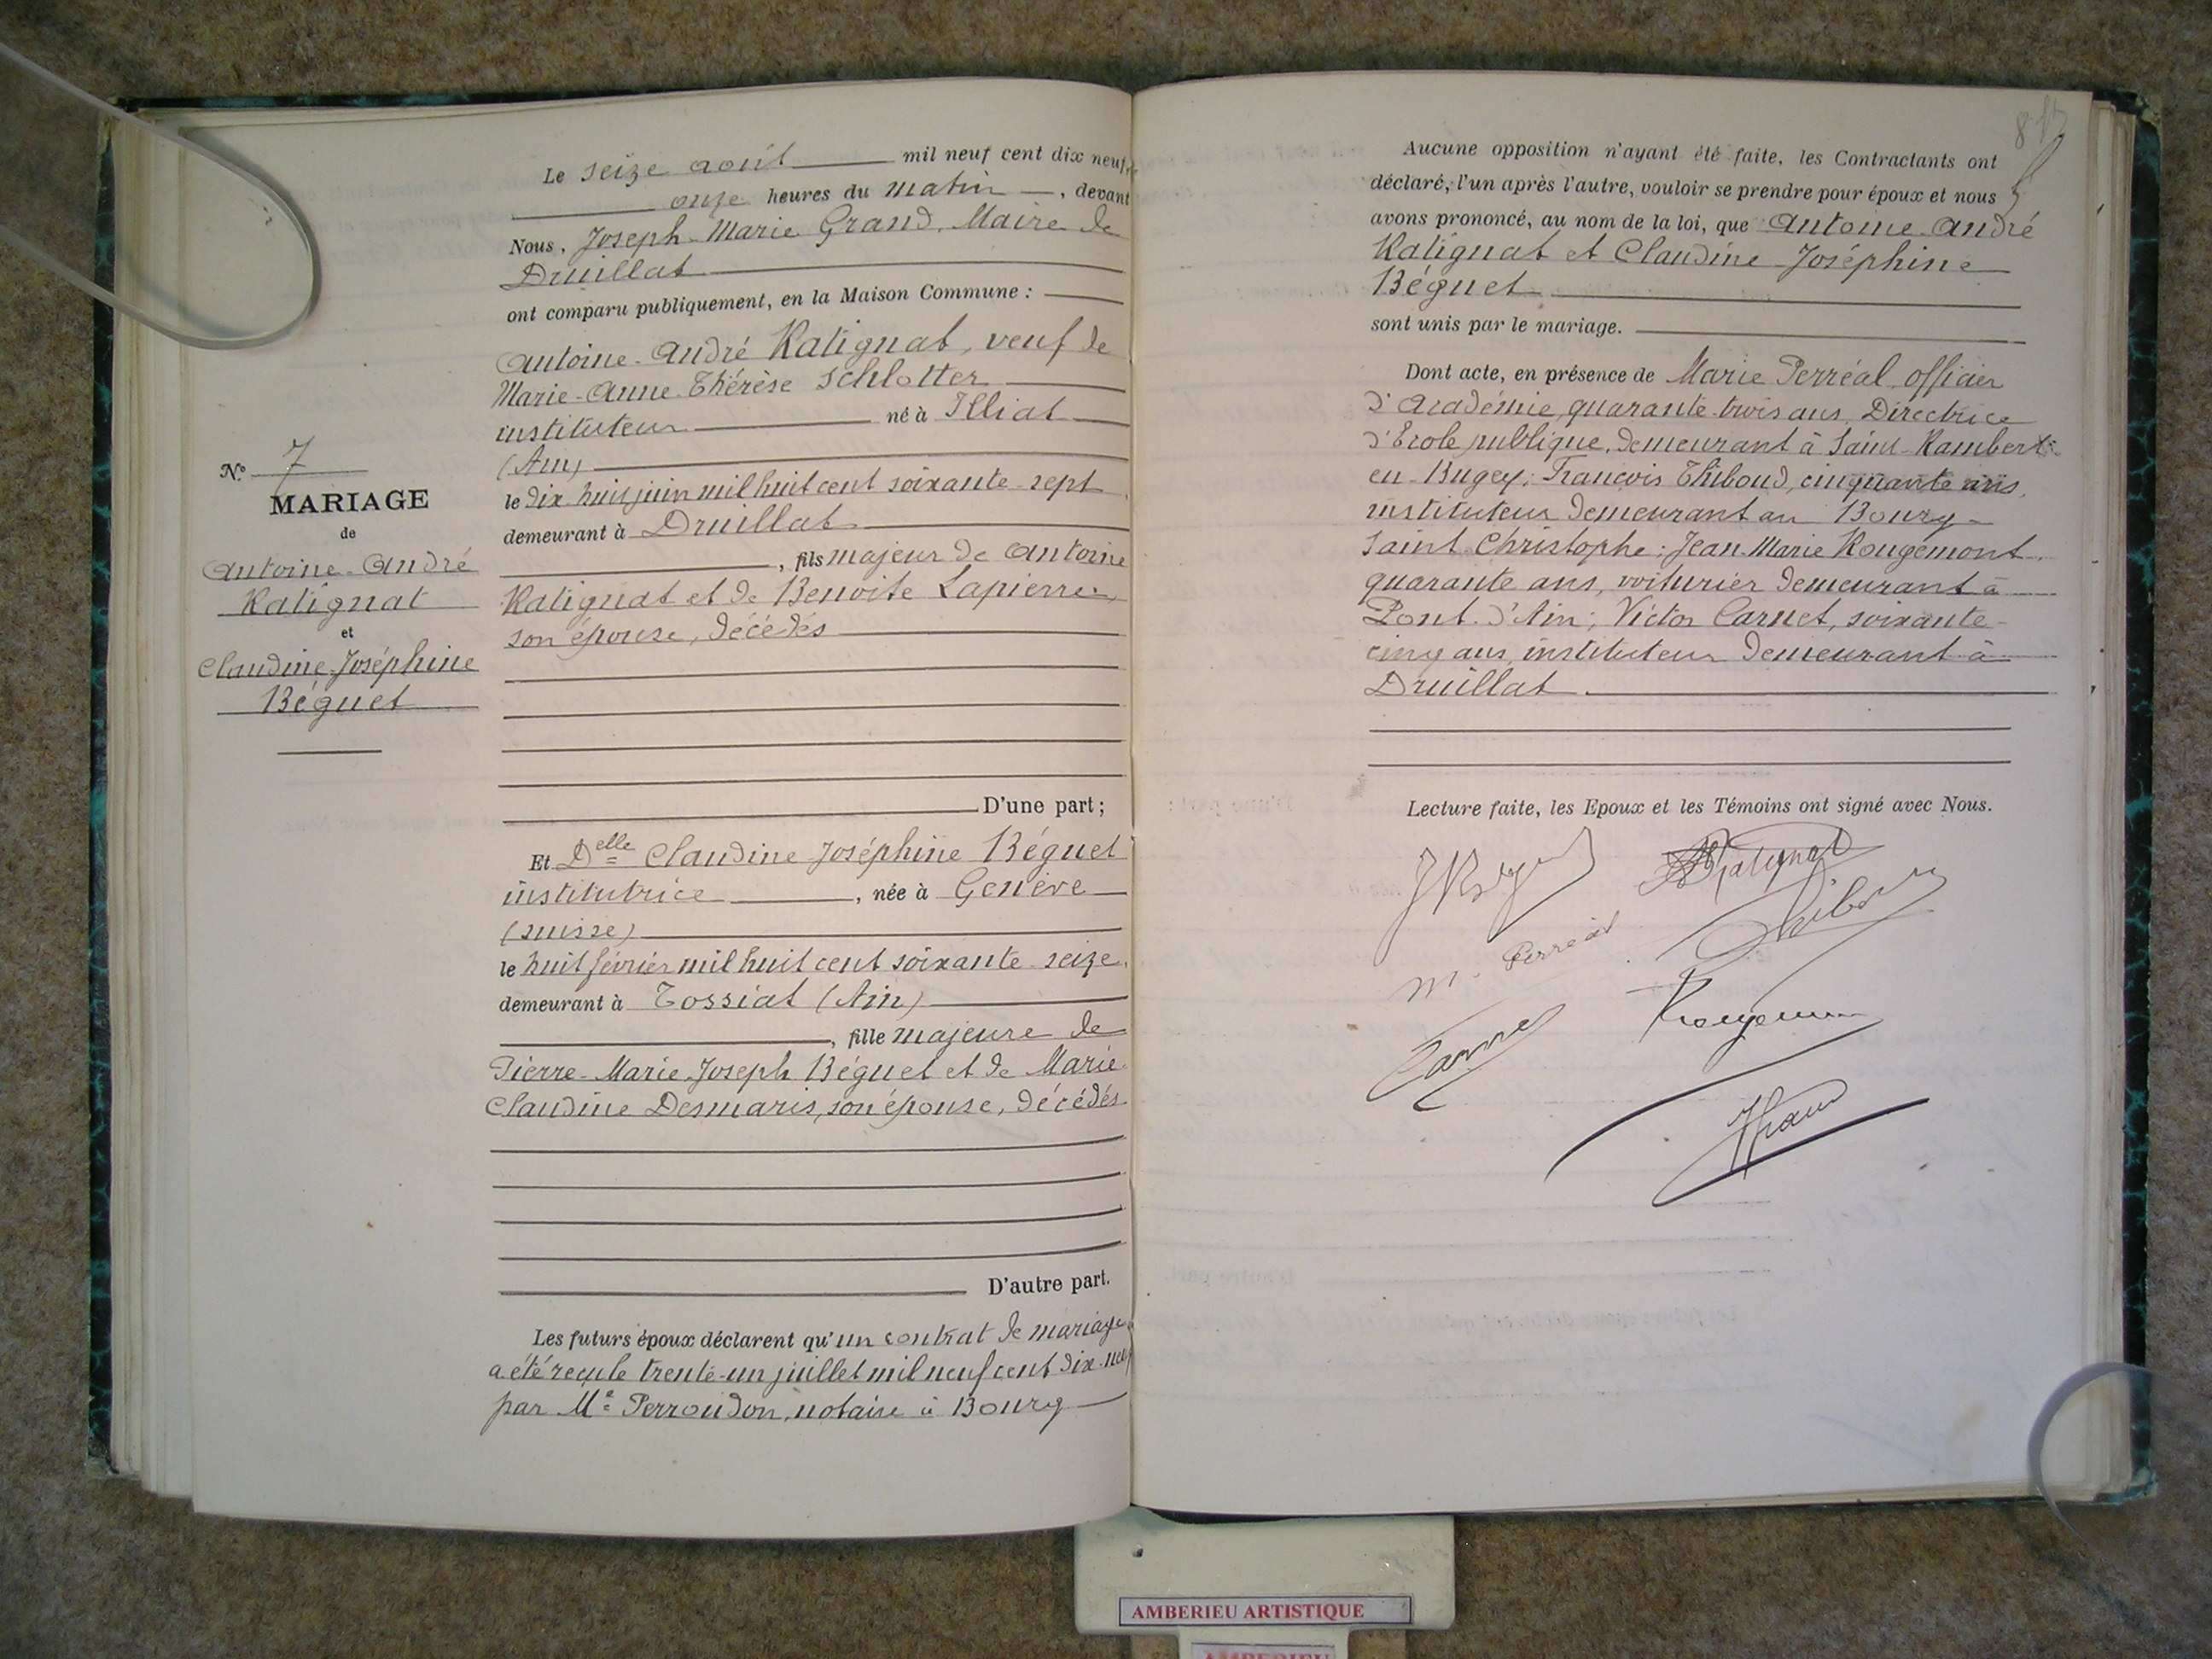 N° 7
MARIAGE
de
Antoine-André
Ratignat
et
Claudine-Joséphine
Béguet
Le seize août mil neuf cent dix neuf,
onze heures du matin, devant
Nous, Joseph-Marie Grand, Maire de
Druillat
ont comparu publiquement, en la Maison Commune :
Antoine-André Ratignat, veuf de
Marie-Anne-Thérèse Schlotter
instituteur né à Illiat
(Ain)
le dix huit juin mil huit cent soixante-sept
demeurant à Druillat
, fils majeur de Antoine
Ratignat et de Benoite Lapierre,
son épouse, décédés
D'une part ;
Et Delle Claudine Joséphine Béguet
institutrice, née à Genève
(Suisse)
le huit février mil huit cent soixante-seize,
demeurant à Tossiat (Ain)
, fille majeure de
Pierre-Marie-Joseph Béguet et de Marie
Claudine Desmaris, son épouse, décédés
D'autre part.
Les futurs époux déclarent qu'un contrat de mariage
a été reçu le trente-un juillet mil neuf cent dix-neuf
par Me Perroudon, notaire à Bourg
817
Aucune opposition n'ayant été faite, les Contractants ont
déclaré, l'un après l'autre, vouloir se prendre pour époux et nous
avons prononcé, au nom de la loi, que Antoine-André
Ratignat et Claudine-Joséphine
Béguet
sont unis par le mariage.
Dont acte, en présence de Marie Perréal, officier
d'Académie, quarante-trois ans, Directrice
d'Ecole publique, demeurant à Saint-Rambert-
en-Bugey; François Thiboud, cinquante ans,
instituteur demeurant au Bourg-
Saint-Christophe; Jean-Marie Rougemont,
quarante ans, voiturier demeurant à
Pont-d'Ain; Victor Carnet, soixante-
cinq ans, instituteur demeurant à
Druillat.
Lecture faite, les Epoux et les Témoins ont signé avec Nous.
Ratignat
M. Perréal
Thiboud
Rougemont
JGrand
AMBERIEU ARTISTIQUE
AMBERIEU